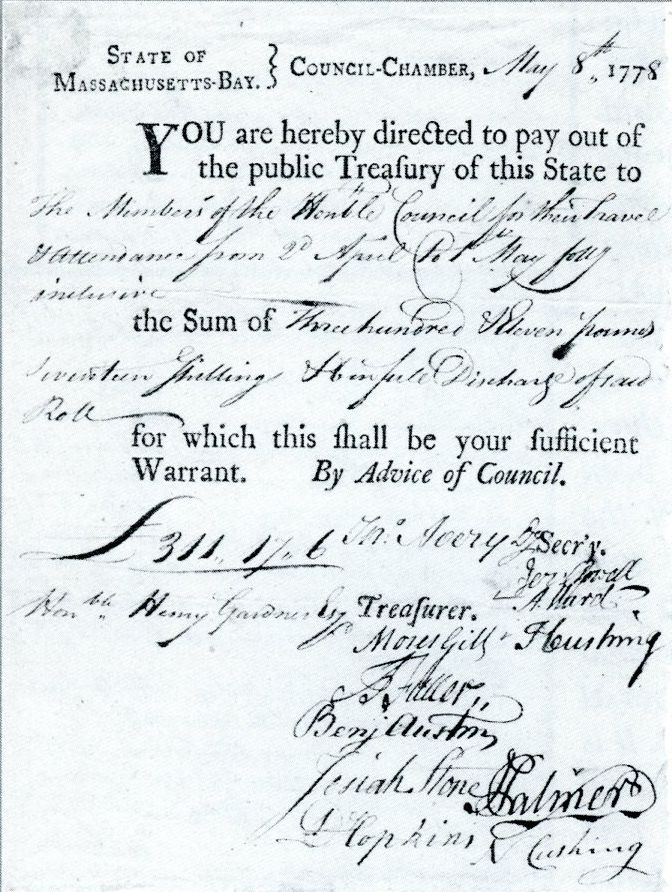 STATE OF
MASSACHUSETTS-BAY. } COUNCIL-CHAMBER, May 8th, 1778
YOU are hereby directed to pay out of
the public Treaſury of this State to
The Members of the Honble Council for their Travel
& attendance from 2d April to 1st May follg
inclusive
the Sum of Three hundred & Eleven pounds
Seventeen Shillings & in full Discharge of said
Roll
for which this ſhall be your ſufficient
Warrant. By Advice of Council.
£311,, 17,, 6 Jno. Avery Dy Secr'y.
Jer Powell
A Ward
Honble,, Henry Gardner Esq Treaſurer.
Moses Gill T Cushing
Fuller
Benj Austin
Josiah Stone Palmer
D Hopkins N Cushing